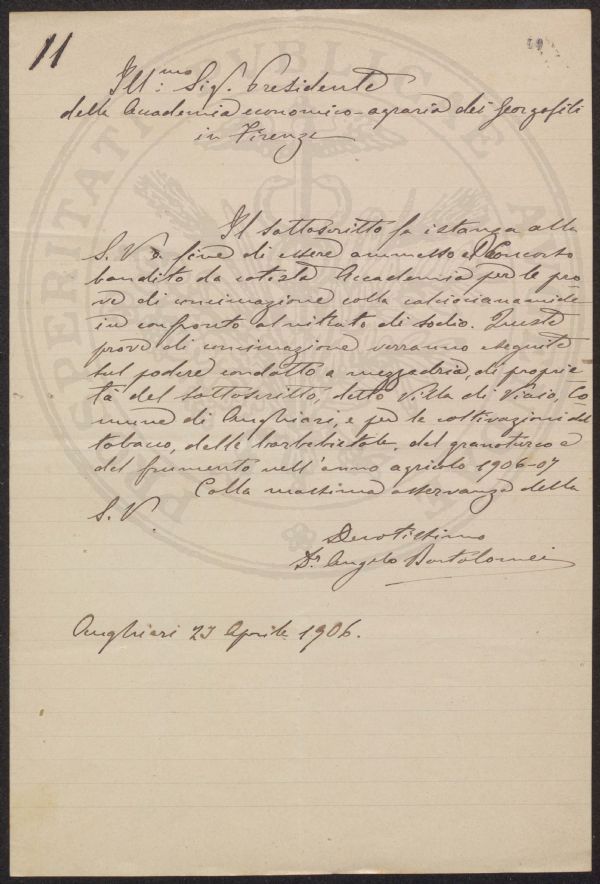 11
Ill:mo Sig. Presidente
della Accademia economico-agraria dei Georgofili
in Firenze
Il sottoscritto fa istanza alla
S. V. a fine di essere ammesso al Concorso
bandito da cotesta Accademia per le pro
ve di concimazione colla calciocianamide
in confronto al nitrato di sodio. Queste
prove di concimazione verranno eseguite
sul podere condotto a mezzadria, di proprie
tà del sottoscritto, detto Villa di Viaio, Co
mune di Anghiari, e per le coltivazioni del
tabacco, delle barbebietole, del granoturco e
del frumento nell'anno agricolo 1906-07
Colla massima osservanza della
S. V.
Devotissimo
Dr Angelo Bartolomei
Anghiari 23 Aprile 1906.